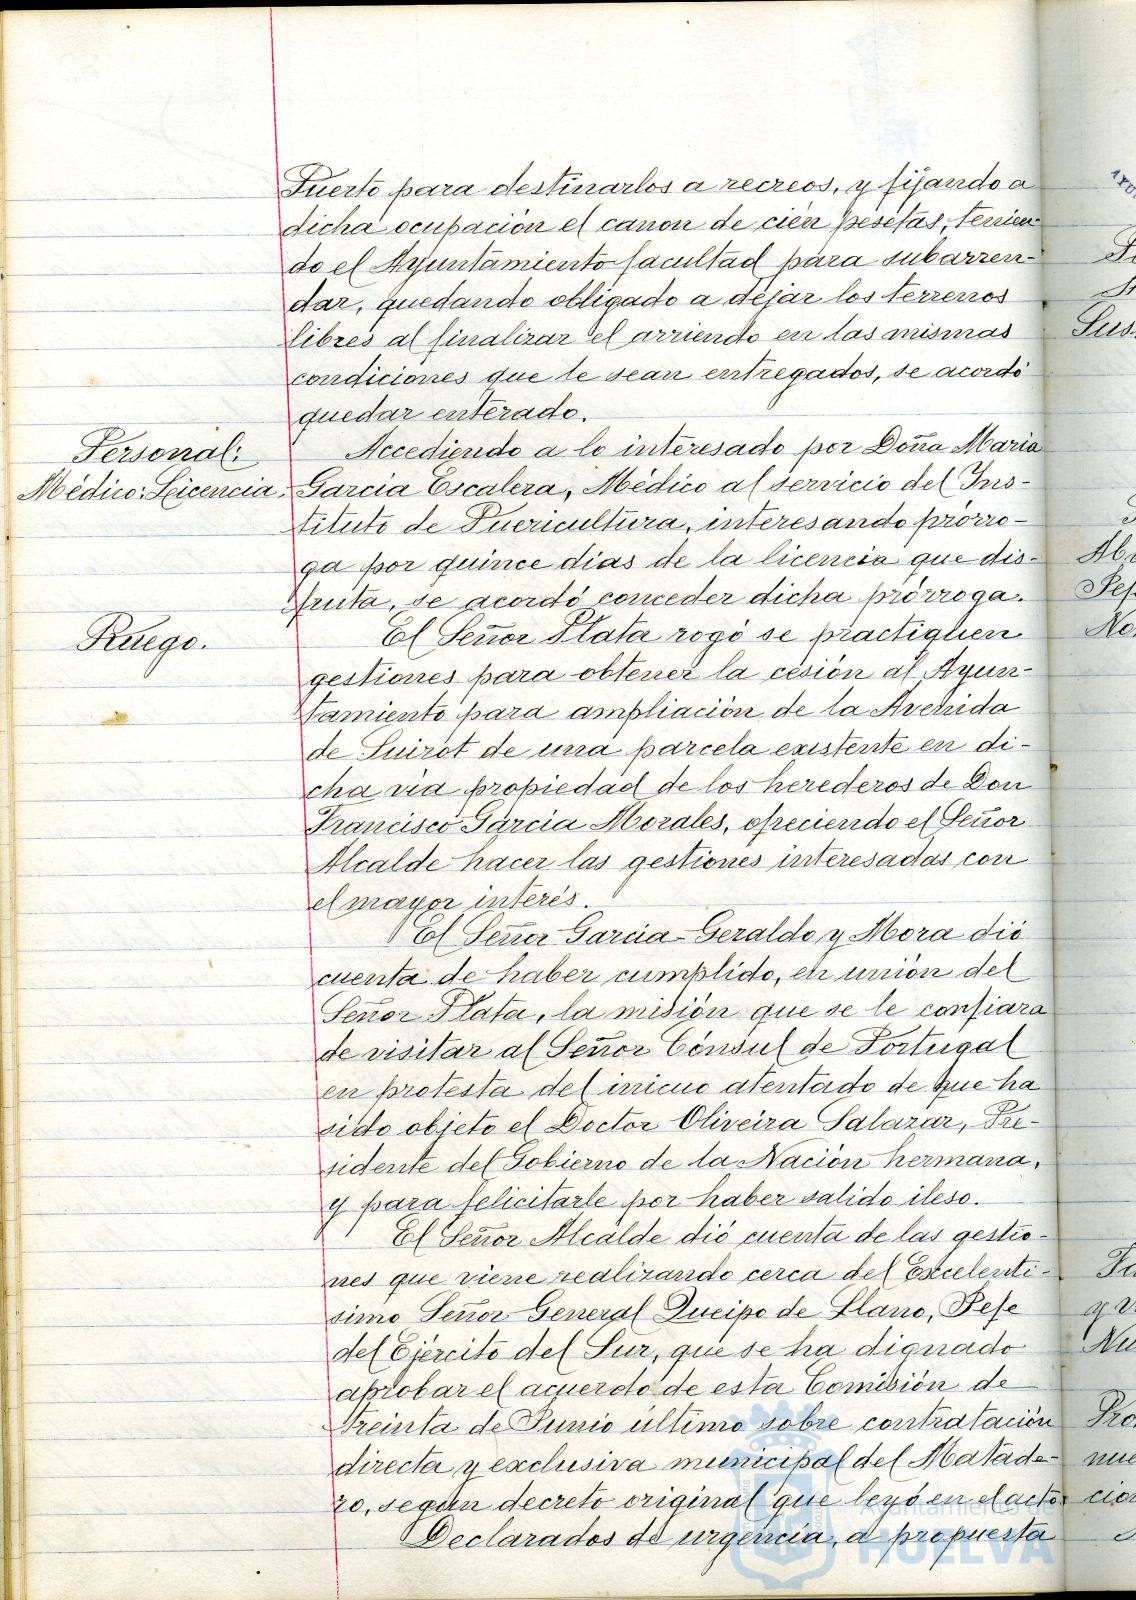 Puerto para destinarlos a recreos, y fijando a
dicha ocupación el canon de cien pesetas, tenien-
do el Ayuntamiento facultad para subarren-
dar, quedando obligado a dejar los terrenos
libres al finalizar el arriendo en las mismas
condiciones que le sean entregados, se acordó
quedar enterado.
Personal:
Médico: Licencia.
Accediendo a lo interesado por Doña Maria
Garcia Escalera, Médico al servicio del Ins-
tituto de Puericultura, interesando prórro-
ga por quince dias de la licencia que dis-
fruta, se acordó conceder dicha prórroga.
Ruego.
El Señor Plata rogó se practiquen
gestiones para obtener la cesión al Ayun-
tamiento para ampliación de la Avenida
de Suirot de una parcela existente en di-
cha via propiedad de los herederos de Don
Francisco Garcia Morales, ofreciendo el Señor
Alcalde hacer las gestiones interesadas con
el mayor interés.
El Señor Garcia-Geraldo y Mora dió
cuenta de haber cumplido, en unión del
Señor Plata, la misión que se le confiara
de visitar al Señor Cónsul de Portugal
en protesta del inicuo atentado de que ha
sido objeto el Doctor Oliveira Salazar, Pre-
sidente del Gobierno de la Nación hermana,
y para felicitarle por haber salido ileso.
El Señor Alcalde dió cuenta de las gestio-
nes que viene realizando cerca del Excelenti-
simo Señor General Queipo de Llano, Jefe
del Ejército del Sur, que se ha dignado
aprobar el acuerdo de esta Comisión de
treinta de Junio último sobre contratación
directa y exclusiva municipal del Matade-
ro, según decreto original que leyó en el acto.
Declarados de urgencia, a propuesta
Ayuntamiento de
HUELVA